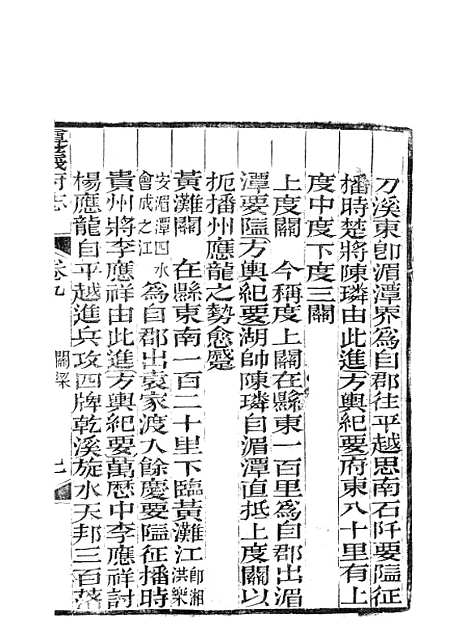 刀溪東卽湄潭界爲自郡往平越思南石阡要隘征
播時楚將陳璘由此進方輿紀要府東八十里有上
度中度下度三關
上度關　今稱度上關在縣東一百里爲自郡出湄
潭要隘方輿紀要湖帥陳璘自湄潭直抵上度關以
扼播州應龍之勢愈蹙
黃灘關　在縣東南一百二十里下臨黃灘江卽湘洪樂
安湄潭四水會成之江爲自郡出袁家渡入餘慶要隘征播時
貴州將李應祥由此進方輿紀要萬厯中李應祥討
楊應龍自平越進兵攻四牌乾溪旋水天邦三百落
遵義府志
卷九
關梁
十一